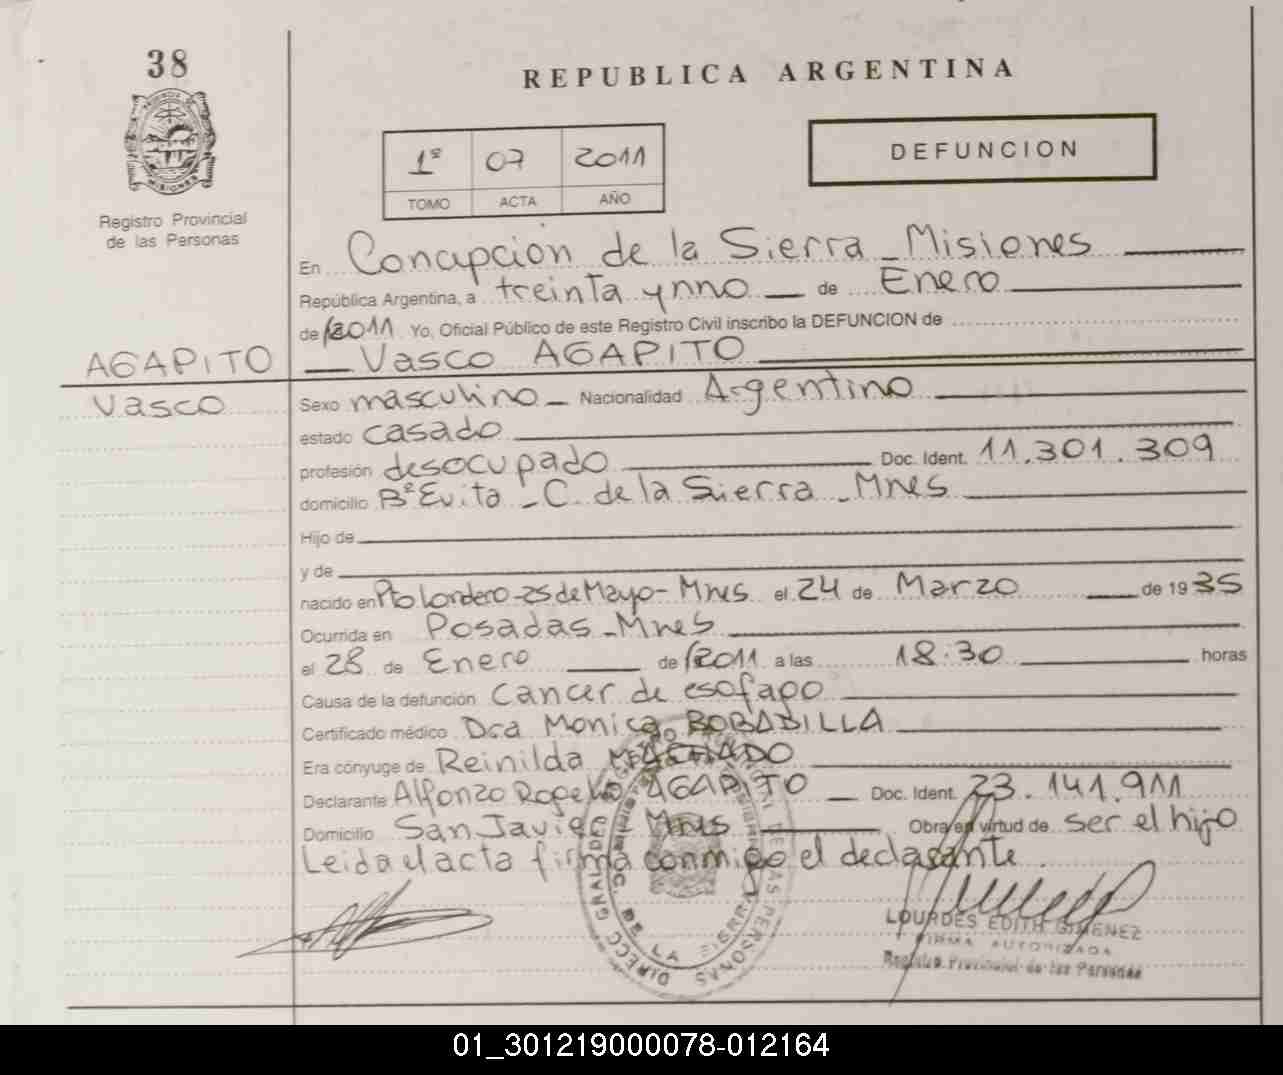 38
REPUBLICA ARGENTINA
PROVINCIA DE
MISIONES
Registro Provincial
de las Personas
1º 07 2011
TOMO ACTA AÑO
DEFUNCION
En Concepción de la Sierra - Misiones
República Argentina, a treinta y uno de Enero
de 2011 Yo, Oficial Público de este Registro Civil inscribo la DEFUNCION de
AGAPITO Vasco AGAPITO
Vasco
Sexo masculino Nacionalidad Argentino
estado casado
profesión desocupado Doc. Ident. 11.301.309
domicilio Bº Evita - C. de la Sierra - Mnes
Hijo de
y de
nacido en Pto Londero - 25 de Mayo - Mnes el 24 de Marzo de 1935
Ocurrida en Posadas - Mnes
el 28 de Enero de 2011 a las 18:30 horas
Causa de la defunción Cancer de esofago
Certificado médico Dra Monica BOBADILLA
Era cónyuge de Reinilda MACHADO
Declarante Alfonzo Rogelio AGAPITO Doc. Ident. 23.141.911
Domicilio San Javier - Mnes Obra en virtud de ser el hijo
Leida el acta firma conmigo el declarante.
LOURDES EDITH GIMENEZ
FIRMA AUTORIZADA
Registro Provincial de las Personas
DE LA SIERRA
01_301219000078-012164